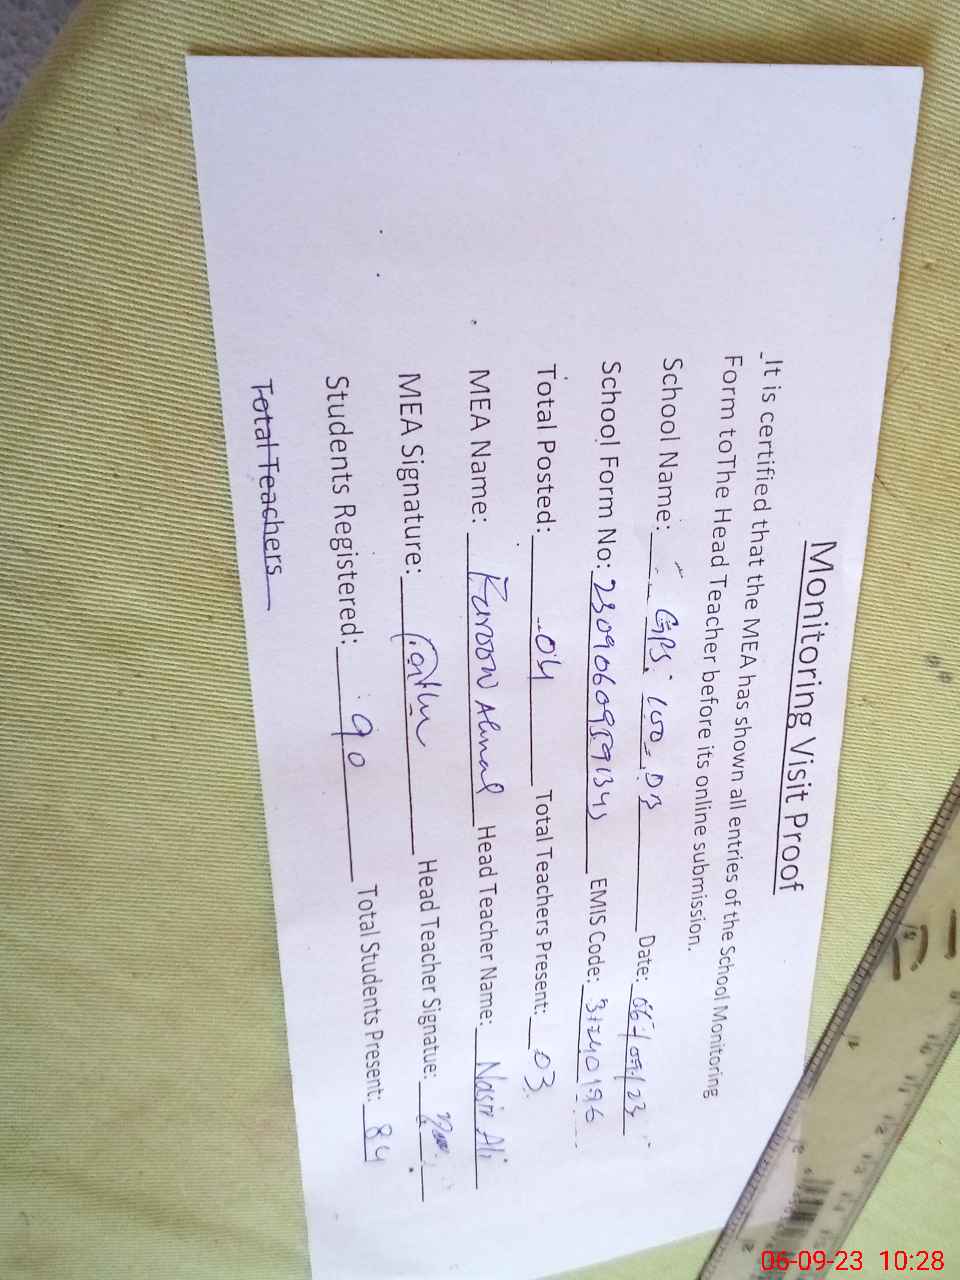 Monitoring Visit Proof
It is certified that the MEA has shown all entries of the School Monitoring
Form toThe Head Teacher before its online submission.
School Name: GPS 100 D3 Date: 06/09/23
School Form No: EMIS Code: 31240196
Total Posted: 04 Total Teachers Present: 03
MEA Name: Ahmad Head Teacher Name: Nasir Ali
MEA Signature: Head Teacher Signatue:
Students Registered: 90 Total Students Present: 84
Total Teachers
06-09-23 10:28